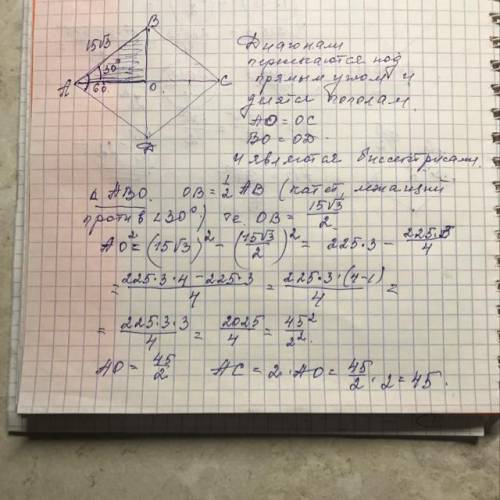 B
15√3
30°
A
60°
O
C
D
Диагонали
пересекаются под
прямым углом и
делятся пополам.
AO = OC
BO = OD
и являются биссектрисами.
Δ ABO. OB = 1/2 AB (катет, лежащий
против ∠30°) те OB = 15√3/2
AO² = (15√3)² - (15√3/2)² = 225·3 - 225·3/4
= 225·3·4 - 225·3/4 = 225·3·(4-1)/4 =
= 225·3·3/4 = 2025/4 = 45²/2².
AO = 45/2 AC = 2·AO = 45/2 · 2 = 45.